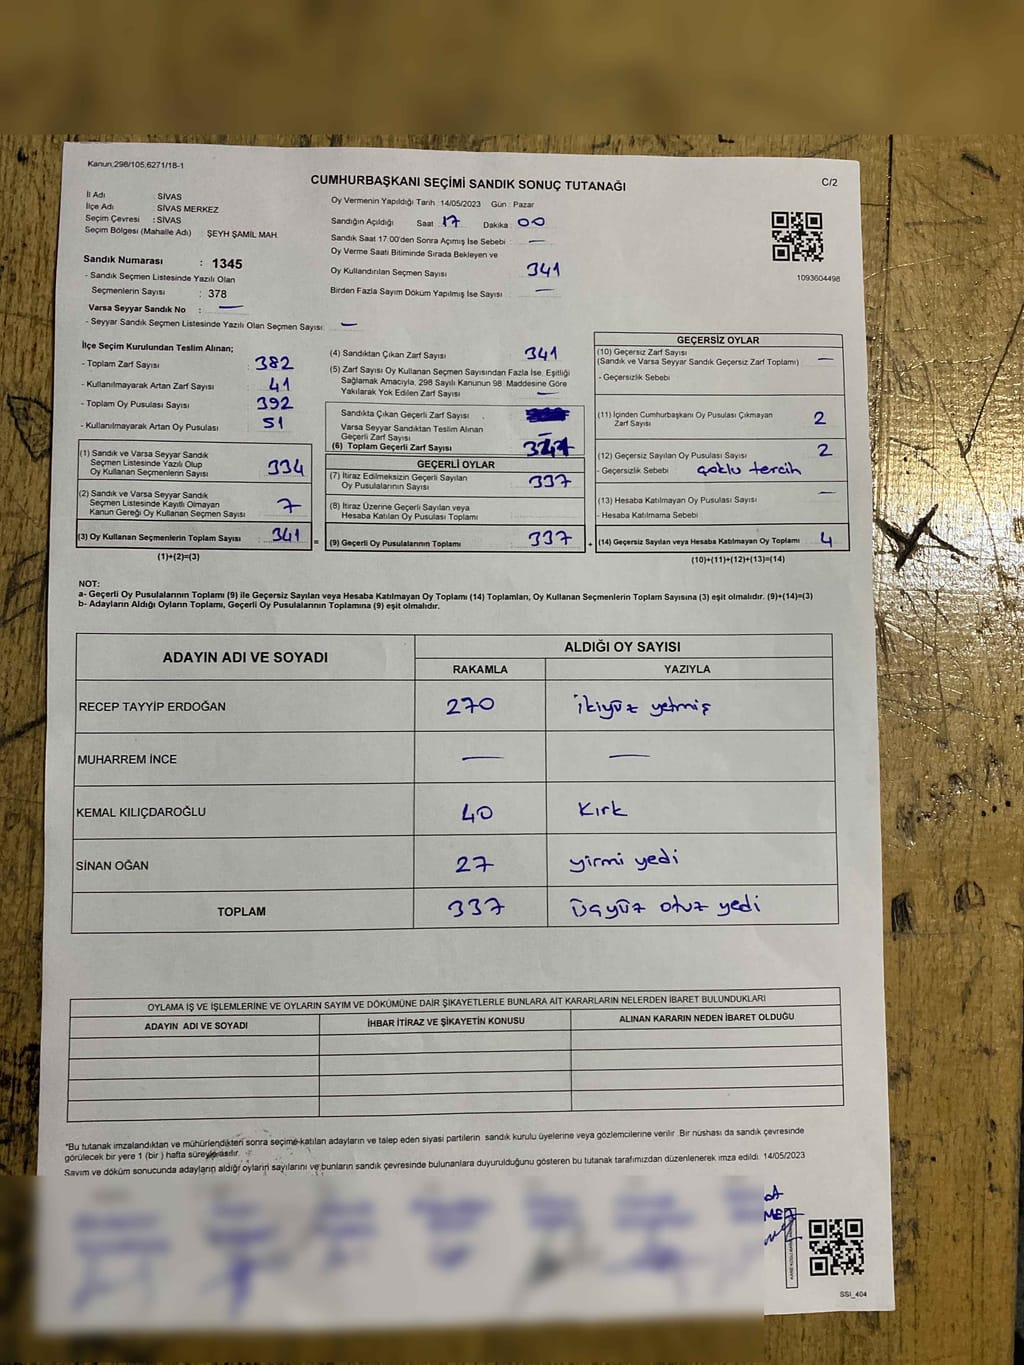 Kanun,298/105,6271/18-1
CUMHURBAŞKANI SEÇİMİ SANDIK SONUÇ TUTANAĞI
C/2
İl Adı : SİVAS
İlçe Adı : SİVAS MERKEZ
Seçim Çevresi : SİVAS
Seçim Bölgesi (Mahalle Adı) : ŞEYH ŞAMİL MAH.
Sandık Numarası : 1345
- Sandık Seçmen Listesinde Yazılı Olan
Seçmenlerin Sayısı : 378
Varsa Seyyar Sandık No : —
- Seyyar Sandık Seçmen Listesinde Yazılı Olan Seçmen Sayısı: —
Oy Vermenin Yapıldığı Tarih :14/05/2023 Gün : Pazar
Sandığın Açıldığı Saat 17 Dakika 00
Sandık Saat 17:00'den Sonra Açımış İse Sebebi : —
Oy Verme Saati Bitiminde Sırada Bekleyen ve
Oy Kullandırılan Seçmen Sayısı 341
Birden Fazla Sayım Döküm Yapılmış İse Sayısı : —
1093604498
İlçe Seçim Kurulundan Teslim Alınan;
- Toplam Zarf Sayısı : 382
- Kullanılmayarak Artan Zarf Sayısı : 41
- Toplam Oy Pusulası Sayısı : 392
- Kullanılmayarak Artan Oy Pusulası : 51
(1) Sandık ve Varsa Seyyar Sandık
Seçmen Listesinde Yazılı Olup
Oy Kullanan Seçmenlerin Sayısı 334
(2) Sandık ve Varsa Seyyar Sandık
Seçmen Listesinde Kayıtlı Olmayan
Kanun Gereği Oy Kullanan Seçmen Sayısı 7
(3) Oy Kullanan Seçmenlerin Toplam Sayısı 341 =
(1)+(2)=(3)
(4) Sandıktan Çıkan Zarf Sayısı 341
(5) Zarf Sayısı Oy Kullanan Seçmen Sayısından Fazla İse, Eşitliği
Sağlamak Amacıyla, 298 Sayılı Kanunun 98. Maddesine Göre
Yakılarak Yok Edilen Zarf Sayısı —
Sandıkta Çıkan Geçerli Zarf Sayısı
Varsa Seyyar Sandıktan Teslim Alınan
Geçerli Zarf Sayısı —
(6) Toplam Geçerli Zarf Sayısı
GEÇERLİ OYLAR
(7) İtiraz Edilmeksizin Geçerli Sayılan
Oy Pusulalarının Sayısı 337
(8) İtiraz Üzerine Geçerli Sayılan veya
Hesaba Katılan Oy Pusulası Toplamı
(9) Geçerli Oy Pusulalarının Toplamı 337 +
GEÇERSİZ OYLAR
(10) Geçersiz Zarf Sayısı
(Sandık ve Varsa Seyyar Sandık Geçersiz Zarf Toplamı) —
- Geçersizlik Sebebi
(11) İçinden Cumhurbaşkanı Oy Pusulası Çıkmayan
Zarf Sayısı 2
(12) Geçersiz Sayılan Oy Pusulası Sayısı 2
- Geçersizlik Sebebi çoklu tercih
(13) Hesaba Katılmayan Oy Pusulası Sayısı —
- Hesaba Katılmama Sebebi
(14) Geçersiz Sayılan veya Hesaba Katılmayan Oy Toplamı 4
(10)+(11)+(12)+(13)=(14)
NOT:
a- Geçerli Oy Pusulalarının Toplamı (9) ile Geçersiz Sayılan veya Hesaba Katılmayan Oy Toplamı (14) Toplamları, Oy Kullanan Seçmenlerin Toplam Sayısına (3) eşit olmalıdır. (9)+(14)=(3)
b- Adayların Aldığı Oyların Toplamı, Geçerli Oy Pusulalarının Toplamına (9) eşit olmalıdır.
ADAYIN ADI VE SOYADI
ALDIĞI OY SAYISI
RAKAMLA YAZIYLA
RECEP TAYYİP ERDOĞAN 270 ikiyüz yetmiş
MUHARREM İNCE — —
KEMAL KILIÇDAROĞLU 40 Kırk
SİNAN OĞAN 27 yirmi yedi
TOPLAM 337 üçyüz otuz yedi
OYLAMA İŞ VE İŞLEMLERİNE VE OYLARIN SAYIM VE DÖKÜMÜNE DAİR ŞİKAYETLERLE BUNLARA AİT KARARLARIN NELERDEN İBARET BULUNDUKLARI
ADAYIN ADI VE SOYADI İHBAR İTİRAZ VE ŞİKAYETİN KONUSU ALINAN KARARIN NEDEN İBARET OLDUĞU
*Bu tutanak imzalandıktan ve mühürlendikten sonra seçime katılan adayların ve talep eden siyasi partilerin sandık kurulu üyelerine veya gözlemcilerine verilir. Bir nüshası da sandık çevresinde
görülecek bir yere 1 (bir) hafta süreyle asılır.
Sayım ve döküm sonucunda adayların aldığı oyların sayılarını ve bunların sandık çevresinde bulunanlara duyurulduğunu gösteren bu tutanak tarafımızdan düzenlenerek imza edildi. 14/05/2023
SSI_404